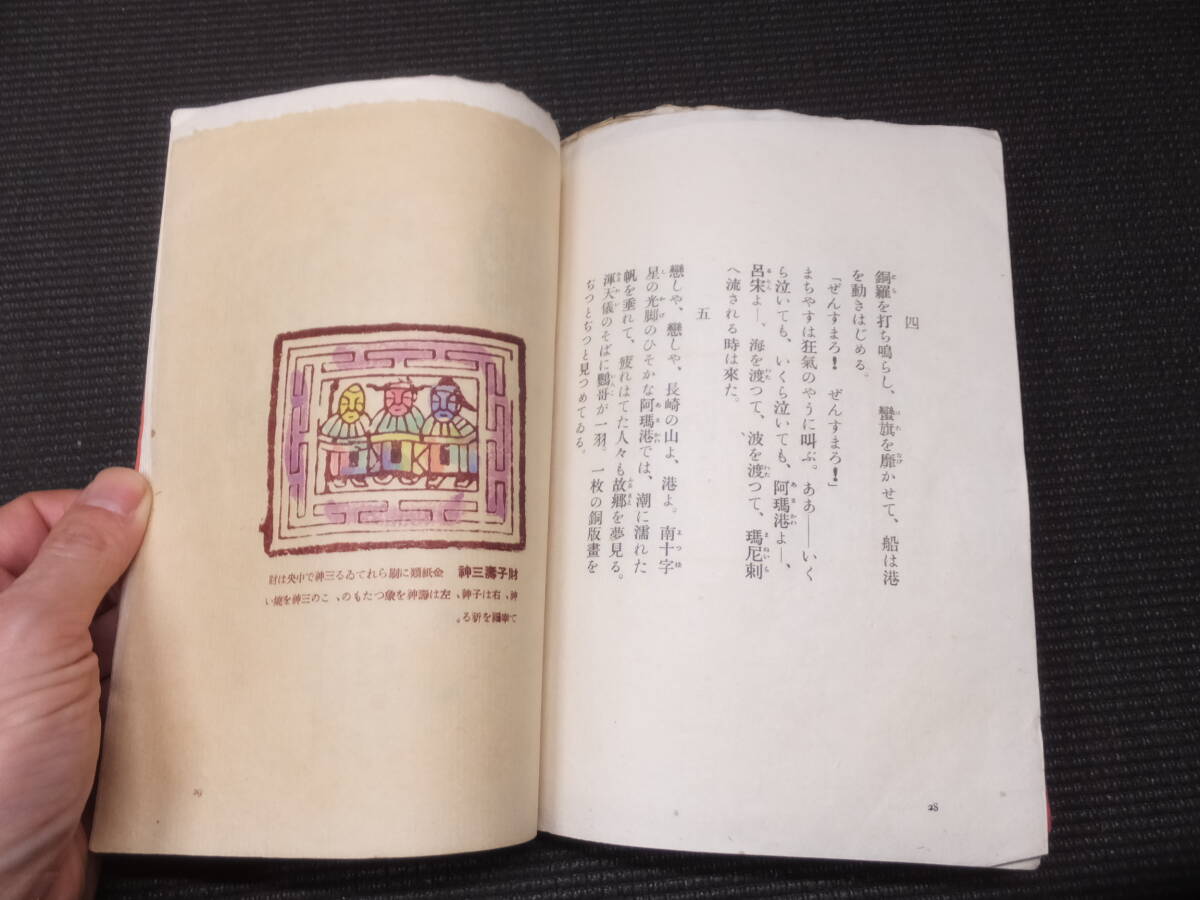 四
銅羅を打ち鳴らし、蠻旗を靡かせて、船は港
を動きはじめる。
「ぜんすまろ! ぜんすまろ!」
まちやすは狂氣のやうに叫ぶ。ああ――いく
ら泣いても、いくら泣いても、阿瑪港よ―、
呂宋よ―、海を渡つて、波を渡つて、瑪尼剌
へ流される時は來た。
五
戀しや、戀しや、長崎の山よ、港よ。南十字
星の光脚のひそかな阿瑪港では、潮に濡れた
帆を垂れて、疲れはてた人々も故郷を夢見る。
渾天儀のそばに鸚哥が一羽。一枚の銅版畫を
ぢつとぢつと見つめてゐる。
28
財子壽三神 金紙類に刷られてゐる三神で中央は財
神、右は子神、左は壽神を象つたもの、この三神を燒い
て幸福を祈る。
29